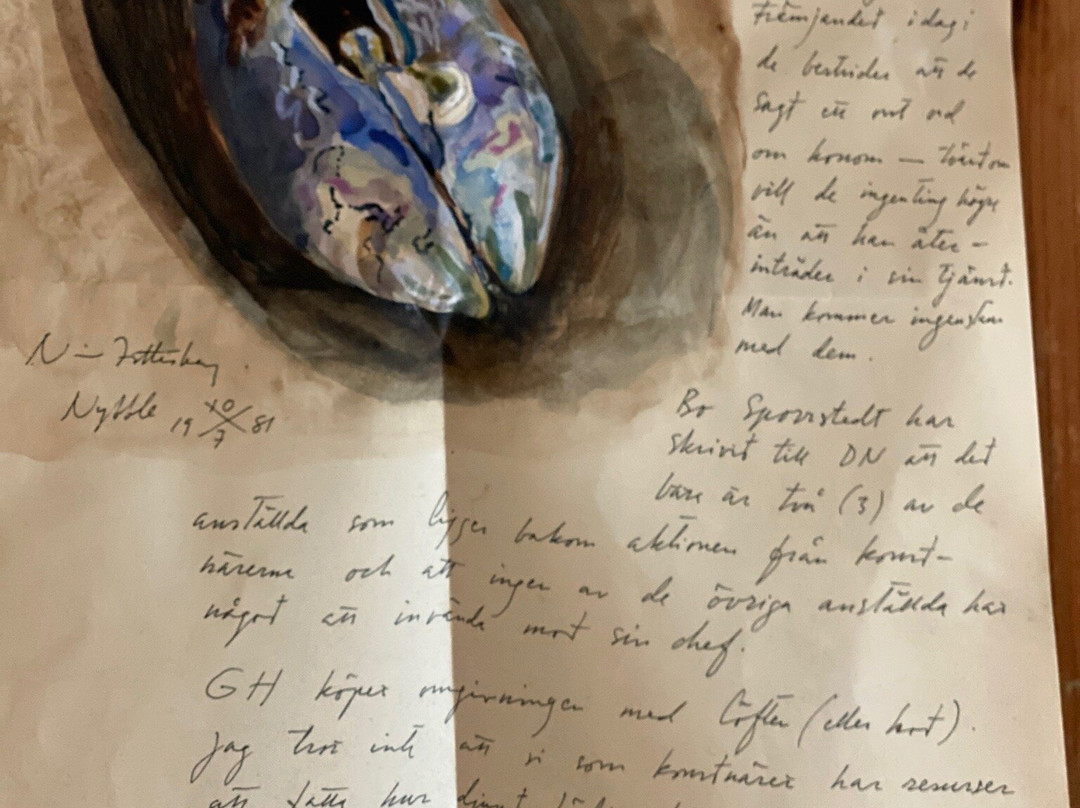 Främjandet idag i
de bestrider att de
sagt ett ont ord
om honom — tvärtom
vill de ingenting högre
än att han åter-
inträder i sin tjänst.
Man kommer ingenstans
med dem.
Nyttle 19 10/7 81
Bo Sporrstedt har
skrivit till DN att det
bara är två (3) av de
anställda som ligger bakom aktionen från konst-
närerna och att ingen av de övriga anställda har
något att invända mot sin chef.
GH köper omgivningen med löften (eller hot).
Jag tror inte att vi som konstnärer har resurser
att fatta hur djupt